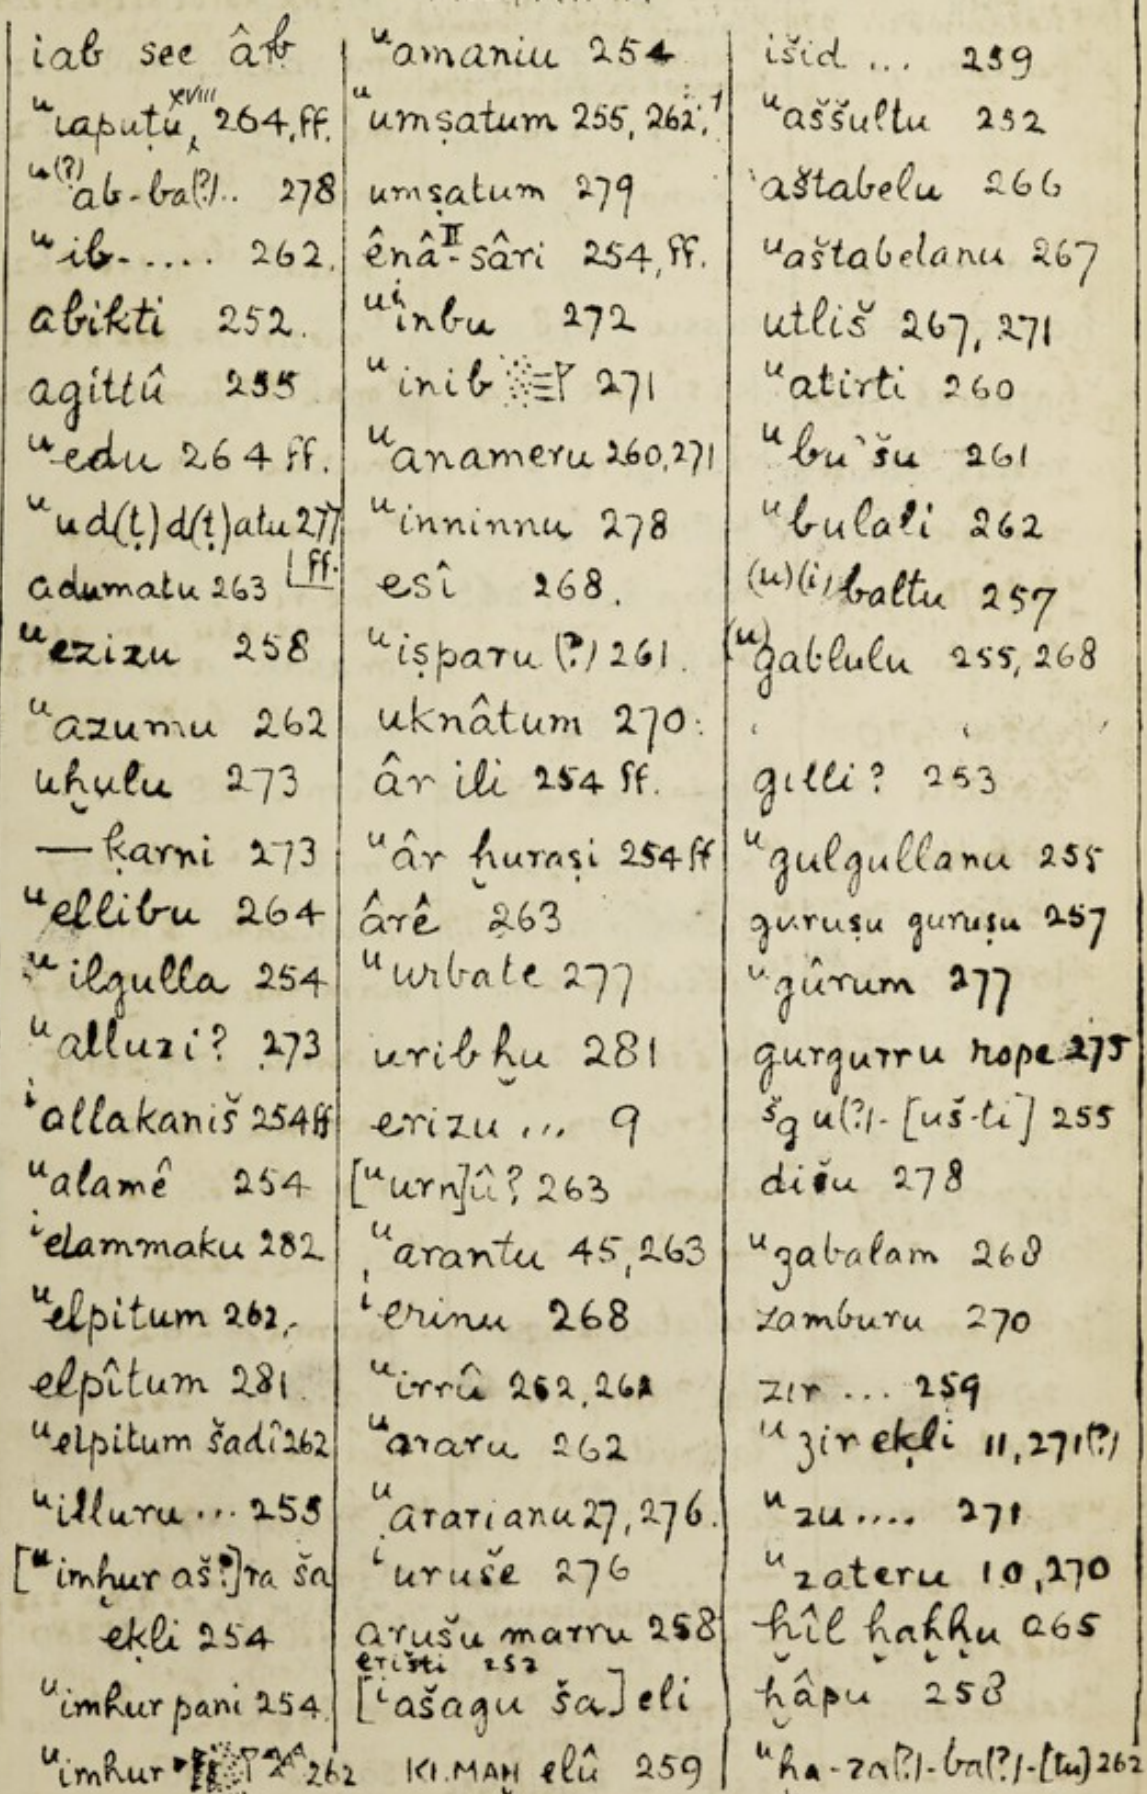 iab see âb
ᵘiaputu, xviii 264, ff.
ᵘ⁽?⁾ab-ba(?).. 278
ᵘib-..... 262.
abikti 252.
agittû 255
ᵘedu 264 ff.
ᵘud(ṭ)d(ṭ)atu 277 ff.
adumatu 263
ᵘezizu 258
ᵘazumu 262
uḫulu 273
— ḳarni 273
ᵘellibu 264
ᵘilgulla 254
ᵘalluzi? 273
ⁱallakaniš 254 ff
ᵘalamê 254
ⁱelammaku 282
ᵘelpitum 262,
elpîtum 281.
ᵘelpitum šadî 262
ᵘilluru... 255
[ᵘimḫur aš?]ra ša
eḳli 254
ᵘimhur pani 254.
ᵘimhur 262
ᵘamaniu 254
ᵘumṣatum 255, 262,
umṣatum 279
ênâ II-sâri 254, ff.
ᵘⁱinbu 272
ᵘinib 271
ᵘanameru 260, 271
ᵘinninnu 278
esî 268.
ᵘiṣparu (?) 261.
uknâtum 270.
âr ili 254 ff.
ᵘâr ḫuraṣi 254 ff
ârê 263
ᵘurbate 277
uribḫu 281
erizu ... 9
[ᵘurn]û? 263
ᵘarantu 45, 263
ⁱerinu 268
ᵘirrû 252, 262
ᵘararu 262
ᵘararianu 27, 276.
ⁱuruše 276
arušu marru 258
erišti 252
[ⁱašagu ša] eli
KI.MAḪ elû 259
išid ... 259
ᵘaššultu 252
aštabelu 266
ᵘaštabelanu 267
utliš 267, 271
ᵘatirti 260
ᵘbu'šu 261
ᵘbulali 262
(u)(i) baltu 257
(u)gablulu 255, 268
gilli? 253
ᵘgulgullanu 255
guruṣu guruṣu 257
ᵘgûrum 277
gurgurru rope 275
šgu(?)-[uš-ti] 255
dišu 278
ᵘzabalam 268
zamburu 270
zir ... 259
ᵘzir eḳli 11, 271(?)
ᵘzu .... 271
ᵘzateru 10, 270
ḫîl ḫaḫḫu 265
ḫâpu 258
ᵘḫa-za(?)-ba(?)-[tu] 262